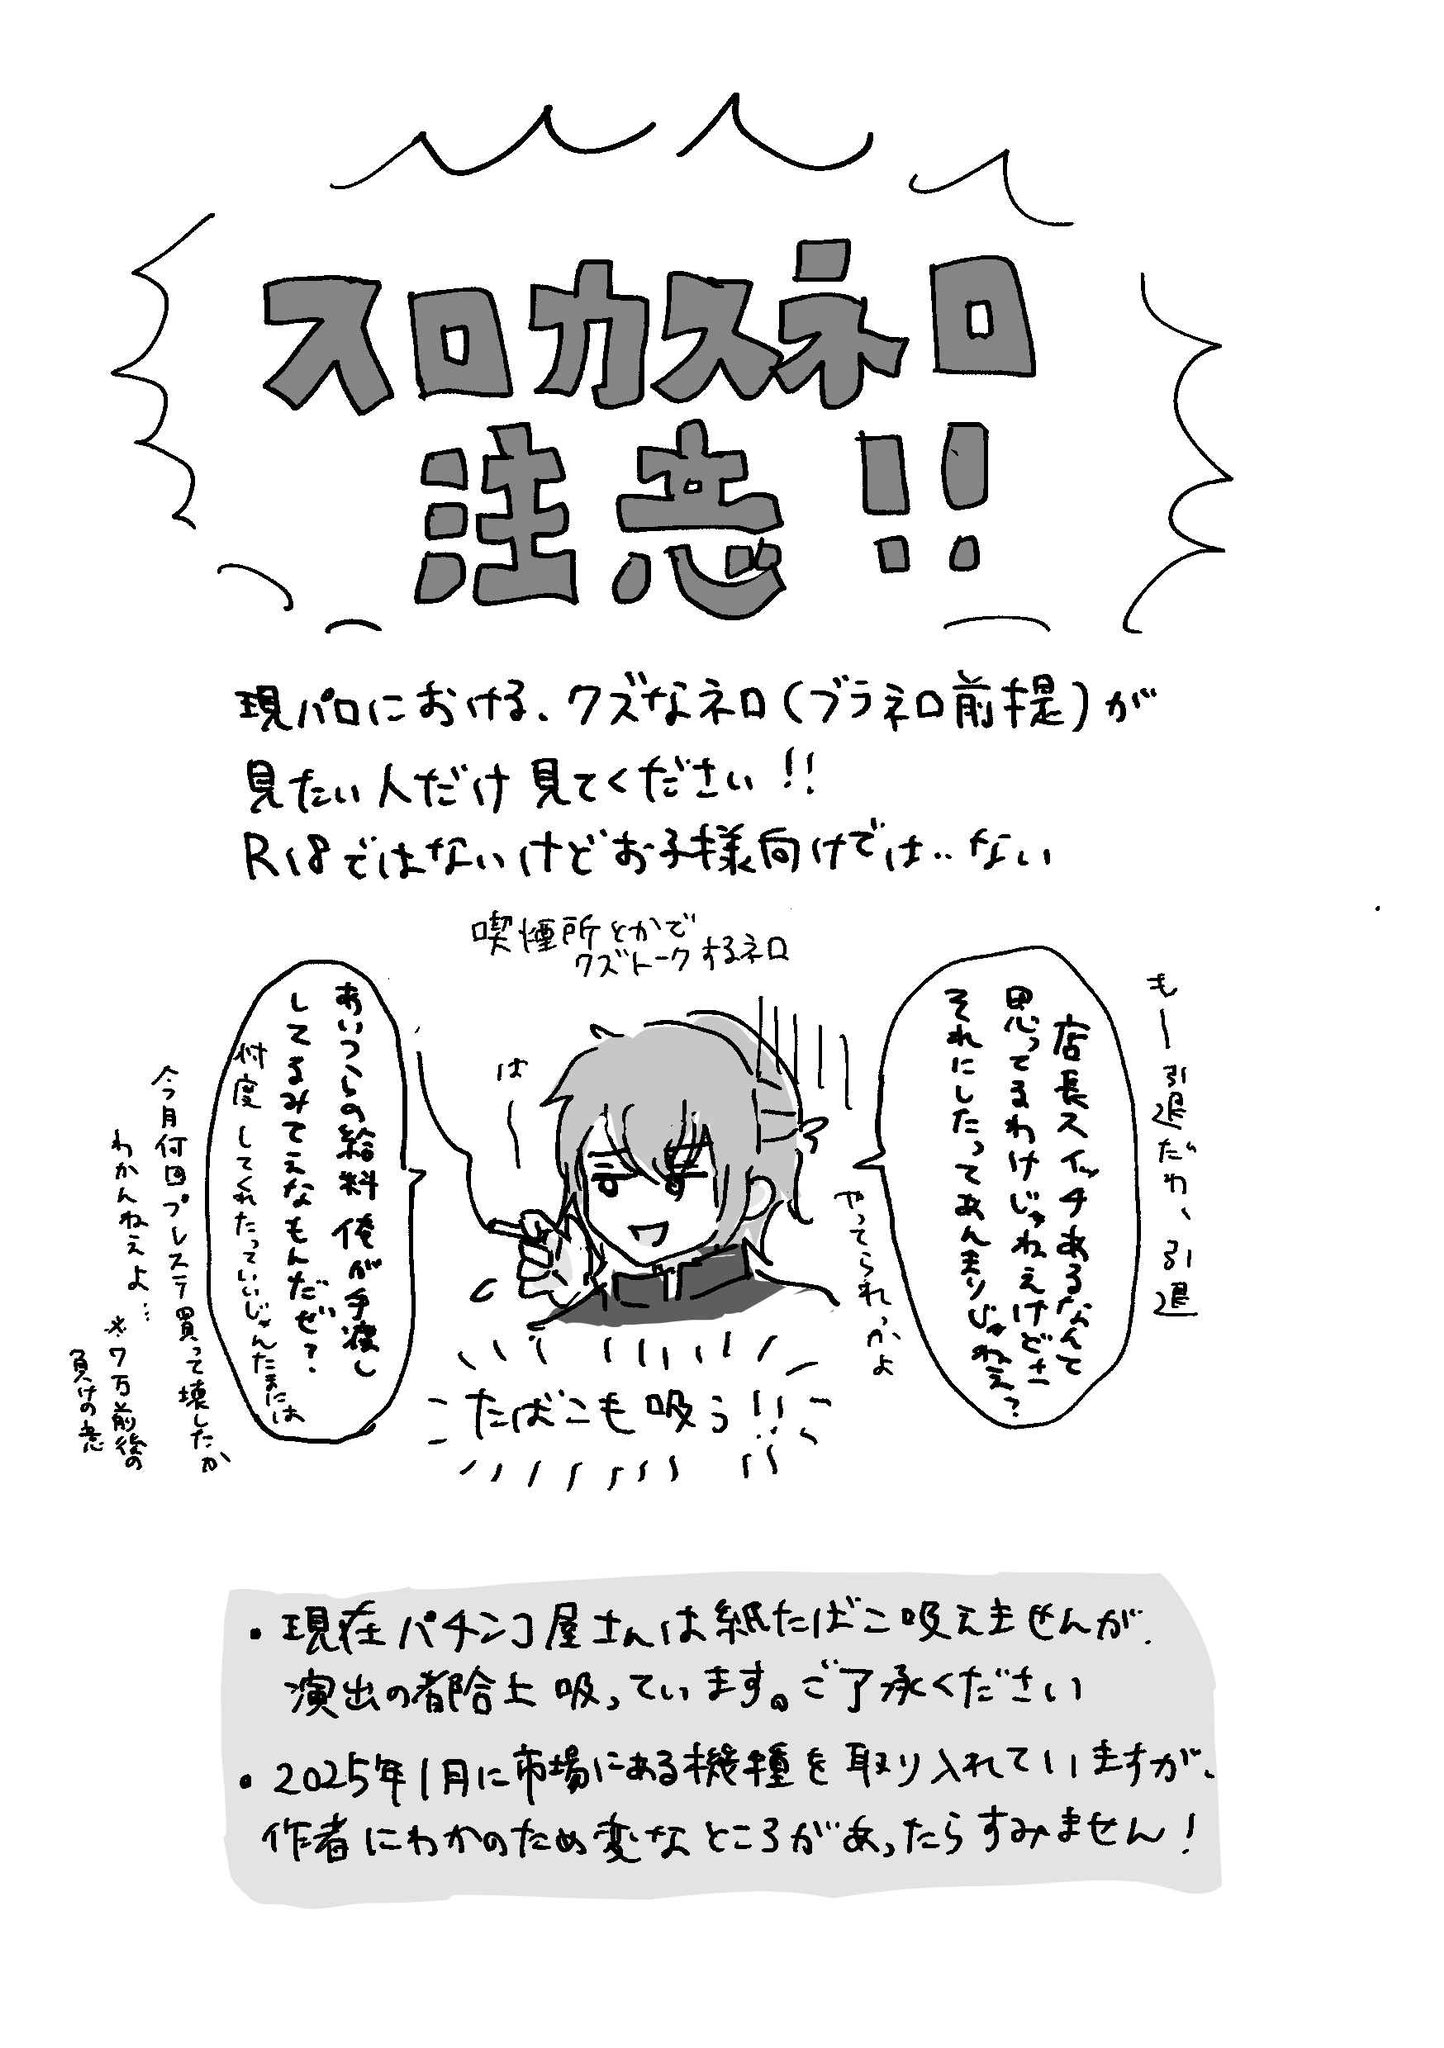 スロカスネロ
注意!!
現パロにおける、クズなネロ(ブラネロ前提)が
見たい人だけ見てください!!
R18ではないけどお子様向けでは‥ない
喫煙所とかで
クズトークするネロ
もー引退だわ、引退
店長スイッチあるなんて
思ってるわけじゃねえけどさ
それにしたってあんまりじゃねえ?
やってられっかよ
はー
あいつらの給料俺が手渡し
してるみてえなもんだぜ?
忖度してくれたっていいじゃんたまには
今月何回プレステ買って壊したか
わかんねえよ…
※7万前後の
負けの意
たばこも吸う!!
・現在パチンコ屋さんは紙たばこ吸えませんが、
演出の都合上吸っています。ご了承ください
・2025年1月に市場にある機種を取り入れていますが、
作者にわかのため変なところがあったらすみません!